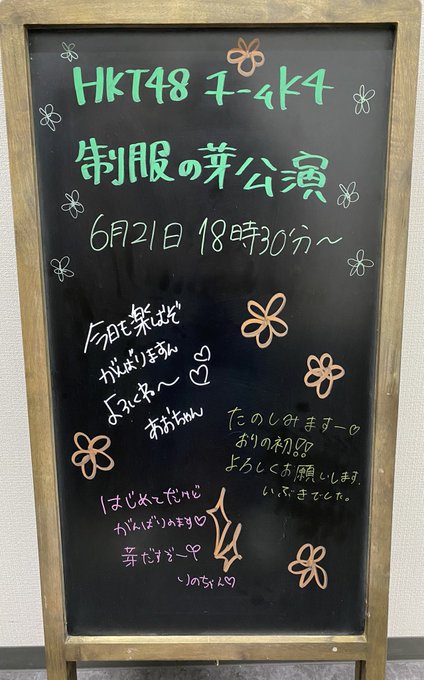 HKT48 チームK4
制服の芽公演
6月21日 18時30分〜
今日も楽しばぞ
がんばりますん
よろしくね〜♡♡
おおちゃん
たのしみますー♡
おりの初!!
よろしくお願いします
いぶきでした。
はじめてだけど
がんばりのます♡
芽だすぞ〜
りのちゃん♡